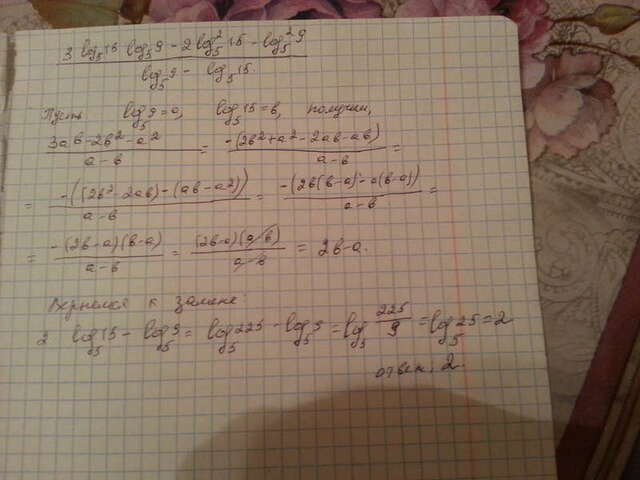 3 log₅15 log₅9 - 2log₅²15 - log₅²9
log₅9 - log₅15
Пусть log₅9=a, log₅15=b, получим,
3ab-2b²-a² / a-b = -(2b²+a²-2ab-ab) / a-b =
= -((2b²-2ab)-(ab-a²)) / a-b = -(2b(b-a)-a(b-a)) / a-b =
= -(2b-a)(b-a) / a-b = (2b-a)(a-b) / a-b = 2b-a.
Вернемся к замене:
2 log₅15 - log₅9 = log₅225 - log₅9 = log₅ 225/9 = log₅25 = 2
ответ: 2.